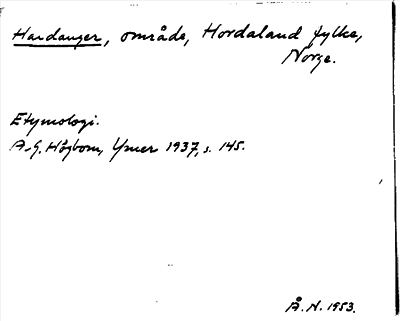 Hardanger, område, Hordaland fylke,
Norge.
Etymologi.
A.G. Högbom, Ymer 1937, s. 145.
Å. N. 1953.